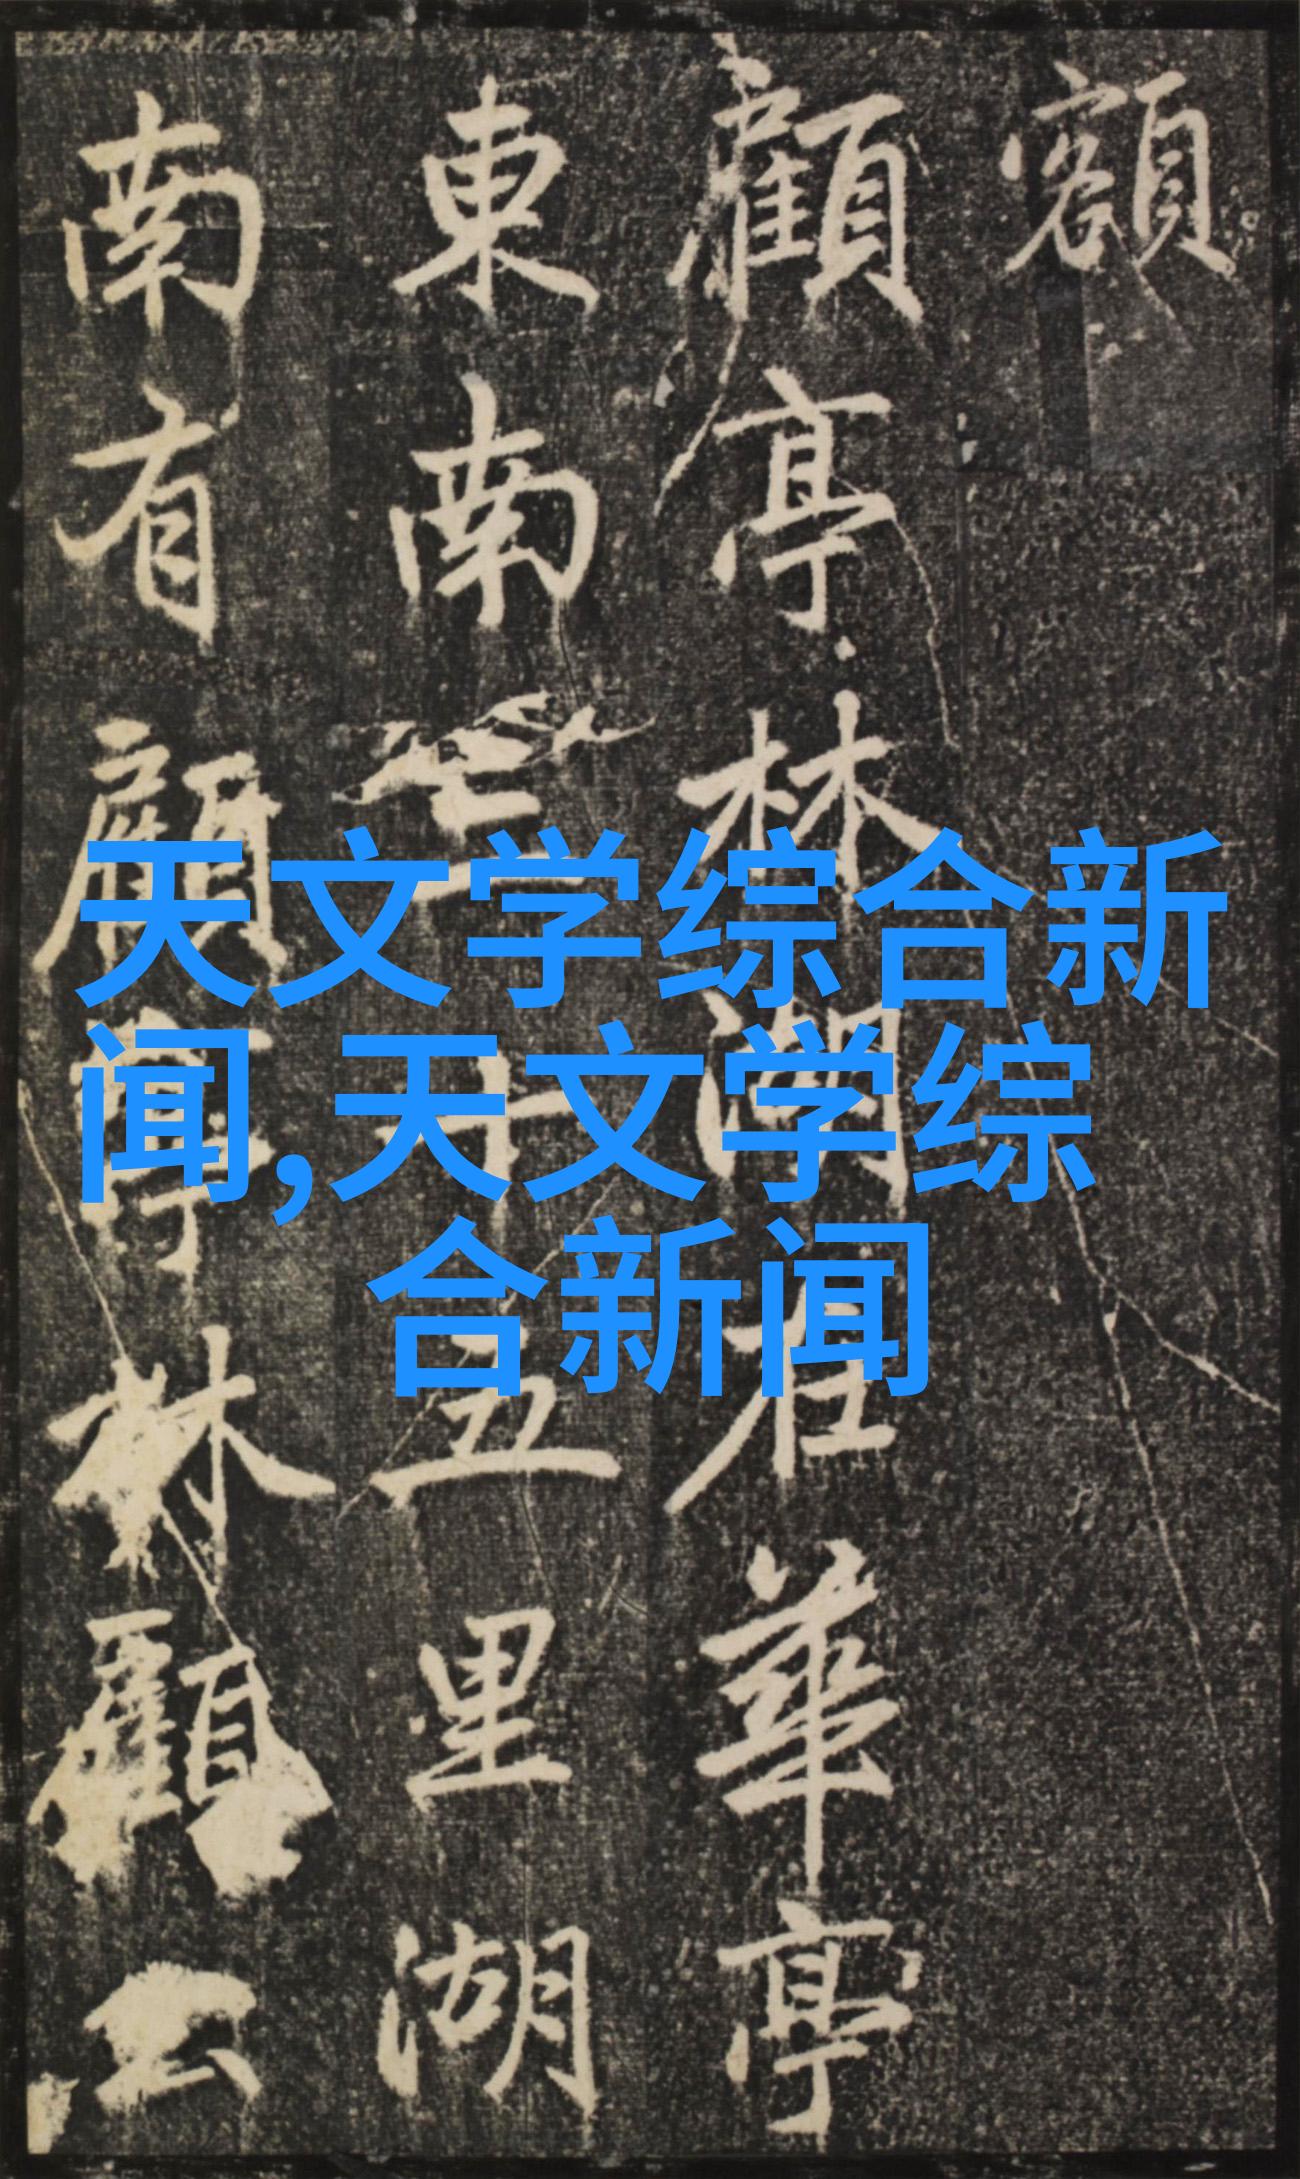 額
顧亭林湖在華亭
東南三十五里湖
南有顧亭林顧公
天文学综合新
闻,天文学综
合新闻